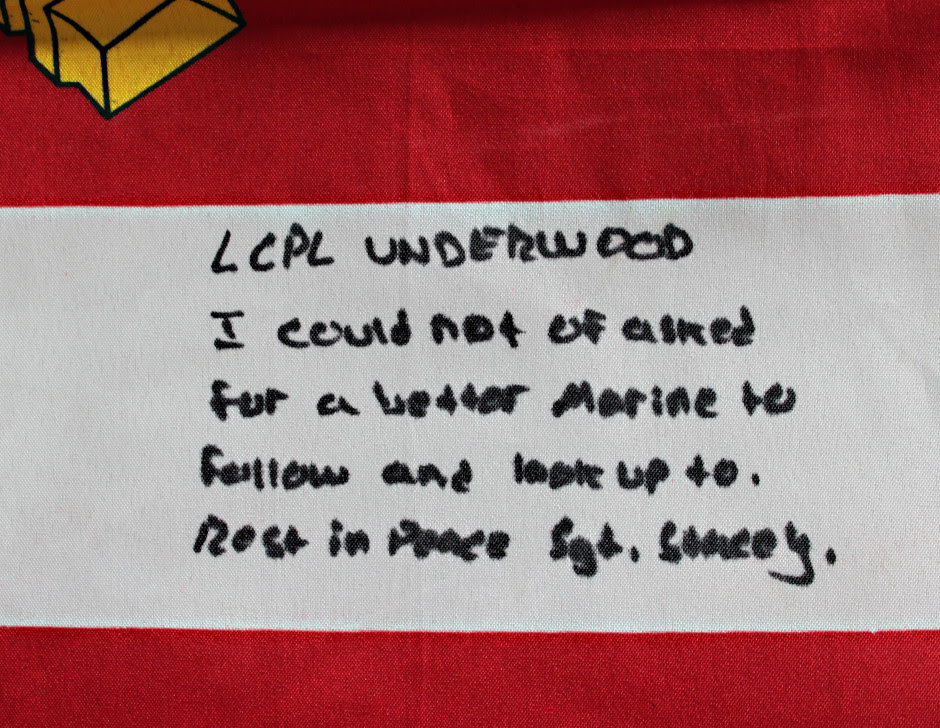 LCPL UNDERWOOD
I could not of asked
for a better Marine to
follow and look up to.
Rest in Peace Sgt. Stacey.